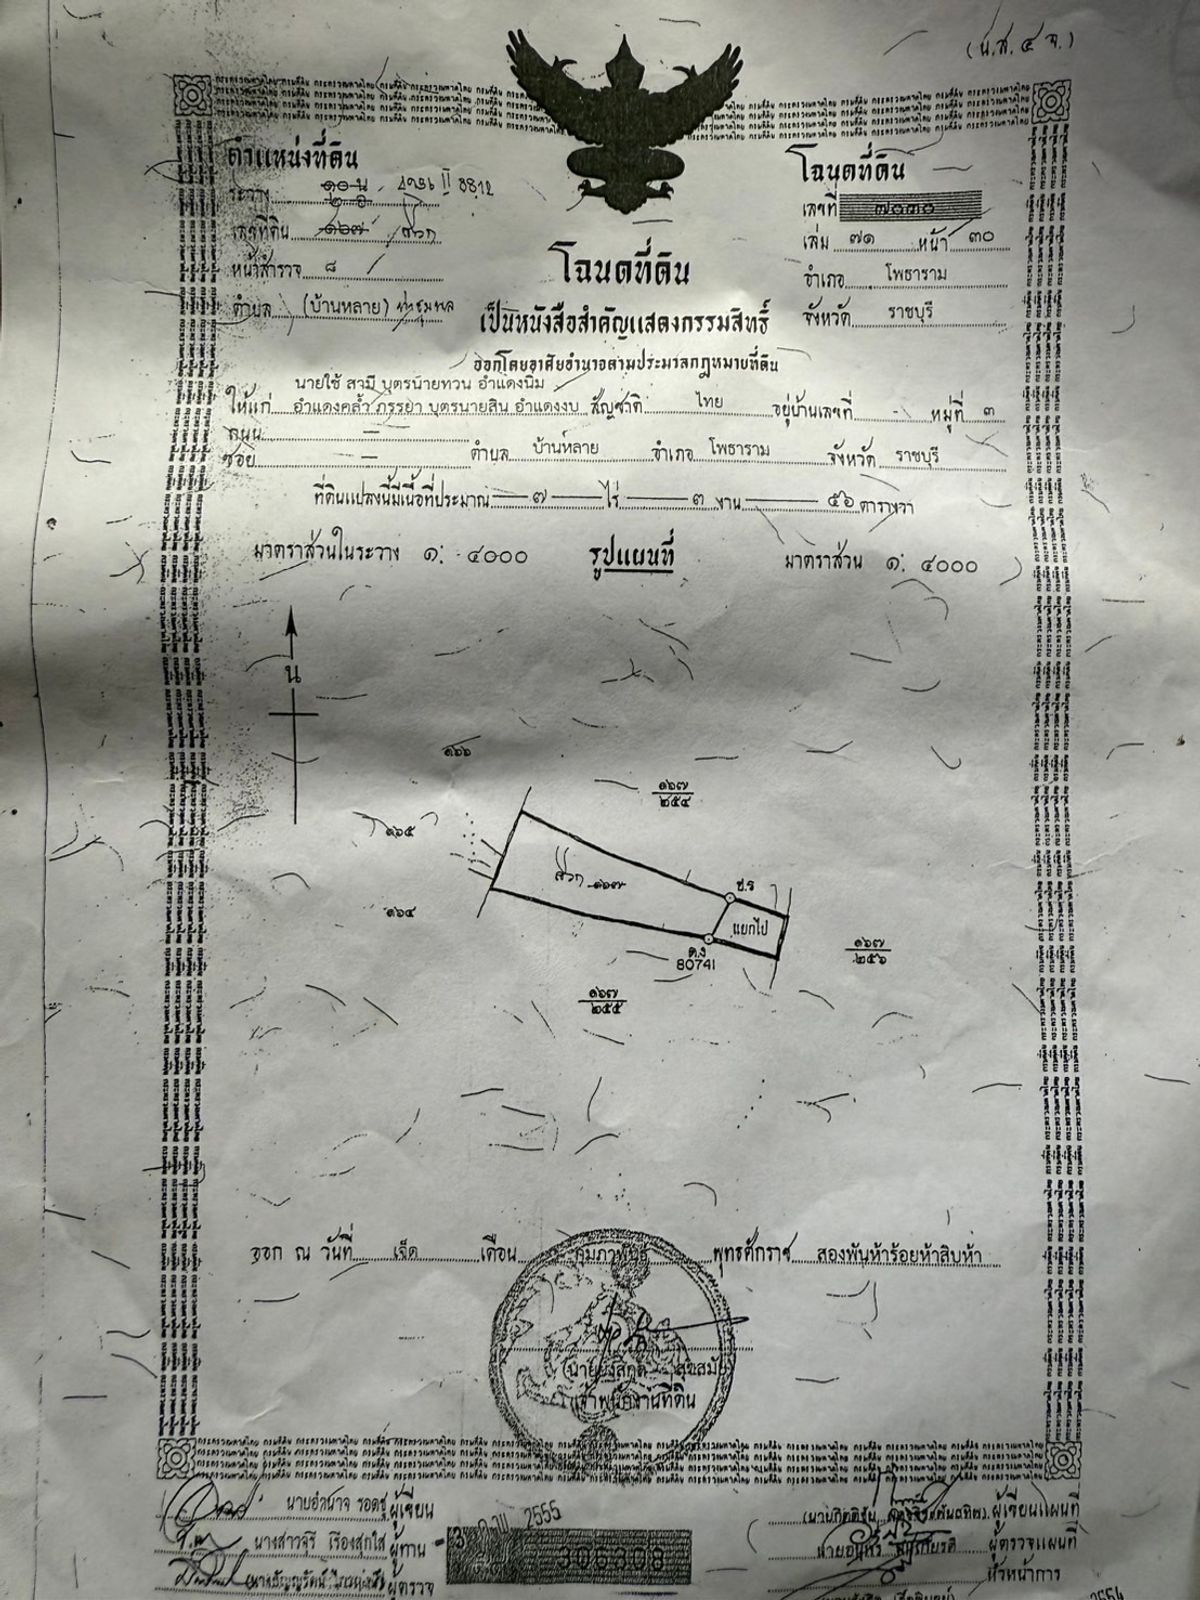 (น.ส.๔ จ.)
ตำแหน่งที่ดิน
ระวาง ๑๐ น ๒ อ ๔๙๓๖ II 8812
เลขที่ดิน ๑๖๗
หน้าสำรวจ ๘
ตำบล (บ้านหลาย) ชำแระ
โฉนดที่ดิน
เลขที่ ๗๐๓๐
เล่ม ๗๑ หน้า ๓๐
อำเภอ โพธาราม
จังหวัด ราชบุรี
โฉนดที่ดิน
เป็นหนังสือสำคัญแสดงกรรมสิทธิ์
ออกโดยอาศัยอำนาจตามประมวลกฎหมายที่ดิน
นายใช้ สามี บุตรนายทวน อำแดงนิ่ม
ให้แก่ อำแดงคล้ำ ภรรยา บุตรนายสิน อำแดงงบ สัญชาติ ไทย อยู่บ้านเลขที่ - หมู่ที่ ๓
ถนน —
ซอย — ตำบล บ้านหลาย อำเภอ โพธาราม จังหวัด ราชบุรี
ที่ดินแปลงนี้มีเนื้อที่ประมาณ ๗ ไร่ ๓ งาน ๕๖ ตารางวา
มาตราส่วนในระวาง ๑: ๔๐๐๐ รูปแผนที่ มาตราส่วน ๑: ๔๐๐๐
น
๑๖๖
๑๖๗
๒๕๔
๑๖๕
๑๖๗
ช.ร
๑๖๔
แยกไป
ต.ง
80741
๑๖๗
๒๕๖
๑๖๗
๒๕๕
ออก ณ วันที่ เจ็ด เดือน กุมภาพันธ์ พุทธศักราช สองพันห้าร้อยห้าสิบห้า
เจ้าพนักงานที่ดิน
นายอำนาจ รอดชู ผู้เขียน
นางสาวจุรี เรืองสุกใส ผู้ทาน
ผู้ตรวจ
2555
306308
ผู้เขียนแผนที่
ผู้ตรวจแผนที่
หัวหน้าการ